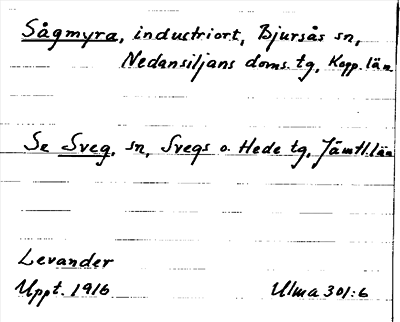 Sågmyra, industriort, Bjursås sn,
Nedansiljans doms. tg, Kopp. län.
Se Sveg, sn, Svegs o. Hede tg, Jämtl. län
Levander
Uppt. 1916 Ulma 301:6